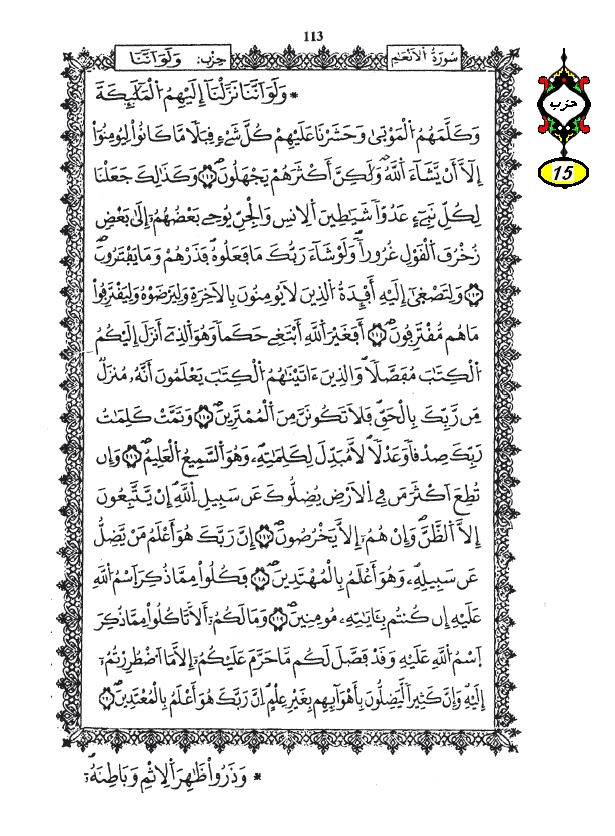 113
سُورَةُ اُلَانْعَٰمِ
حِزْب: وَلَوَ اَنَّنَا
حزب
15
* وَلَوَ اَنَّنَا نَزَّلْنَآ إِلَيْهِمُ اُلْمَلَٰٓئِكَةَ
وَكَلَّمَهُمُ اُلْمَوْتۭيٰ وَحَشَرْنَا عَلَيْهِمْ كُلَّ شَےْءٍ قِبَلاٗ مَّا كَانُواْ لِيُومِنُوٓاْ
إِلَّآ أَنْ يَّشَآءَ اَللَّهُ وَلَٰكِنَّ أَكْثَرَهُمْ يَجْهَلُونَۖ ١١٢ وَكَذَٰلِكَ جَعَلْنَا
لِكُلِّ نَبِےٓءٍ عَدُوّاٗ شَيَٰطِينَ اَلِانسِ وَالْجِنِّ يُوحِے بَعْضُهُمُۥٓ إِلَيٰ بَعْضٖ
زُخْرُفَ اَلْقَوْلِ غُرُوراٗۖ وَلَوْ شَآءَ رَبُّكَ مَا فَعَلُوهُۖ فَذَرْهُمْ وَمَا يَفْتَرُونَۖ
١١٣ وَلِتَصْغۭيٰٓ إِلَيْهِ أَفْـِٕدَةُ اُلذِينَ لَا يُومِنُونَ بِالَاخِرَةِ وَلِيَرْضَوْهُ وَلِيَقْتَرِفُواْ
مَا هُم مُّقْتَرِفُونَۖ ١١٤ أَفَغَيْرَ اَللَّهِ أَبْتَغِے حَكَماٗ وَهُوَ اَلذِےٓ أَنزَلَ إِلَيْكُمُ
اُلْكِتَٰبَ مُفَصَّلاٗۖ وَالذِينَ ءَاتَيْنَٰهُمُ اُلْكِتَٰبَ يَعْلَمُونَ أَنَّهُۥ مُنزَلٞ
مِّن رَّبِّكَ بِالْحَقِّۖ فَلَا تَكُونَنَّ مِنَ اَلْمُمْتَرِينَۖ ١١٥ وَتَمَّتْ كَلِمَٰتُ
رَبِّكَ صِدْقاٗ وَعَدْلاٗۖ لَّا مُبَدِّلَ لِكَلِمَٰتِهِۦۖ وَهُوَ اَلسَّمِيعُ اُلْعَلِيمُۖ ١١٦ وَإِن
تُطِعَ اَكْثَرَ مَن فِے اِلَارْضِ يُضِلُّوكَ عَن سَبِيلِ اِللَّهِۖ إِنْ يَّتَّبِعُونَ
إِلَّا اَلظَّنَّۖ وَإِنْ هُمُۥٓ إِلَّا يَخْرُصُونَۖ ١١٧ إِنَّ رَبَّكَ هُوَ أَعْلَمُ مَنْ يَّضِلُّ
عَن سَبِيلِهِۦۖ وَهُوَ أَعْلَمُ بِالْمُهْتَدِينَۖ ١١٨ فَكُلُواْ مِمَّا ذُكِرَ اَسْمُ اُللَّهِ
عَلَيْهِ إِن كُنتُم بِـَٔايَٰتِهِۦ مُومِنِينَۖ ١١٩ وَمَا لَكُمُۥٓ أَلَّا تَاكُلُواْ مِمَّا ذُكِرَ
اَسْمُ اُللَّهِ عَلَيْهِ وَقَدْ فَصَّلَ لَكُم مَّا حَرَّمَ عَلَيْكُمُۥٓ إِلَّا مَا اَضْطُرِرْتُمُۥٓ
إِلَيْهِۖ وَإِنَّ كَثِيراٗ لَّيَضِلُّونَ بِأَهْوَآئِهِم بِغَيْرِ عِلْمٍۖ اِنَّ رَبَّكَ هُوَ أَعْلَمُ بِالْمُعْتَدِينَۖ ١٢٠
* وَذَرُواْ ظَٰهِرَ اَلِاثْمِ وَبَاطِنَهُۥٓۖ